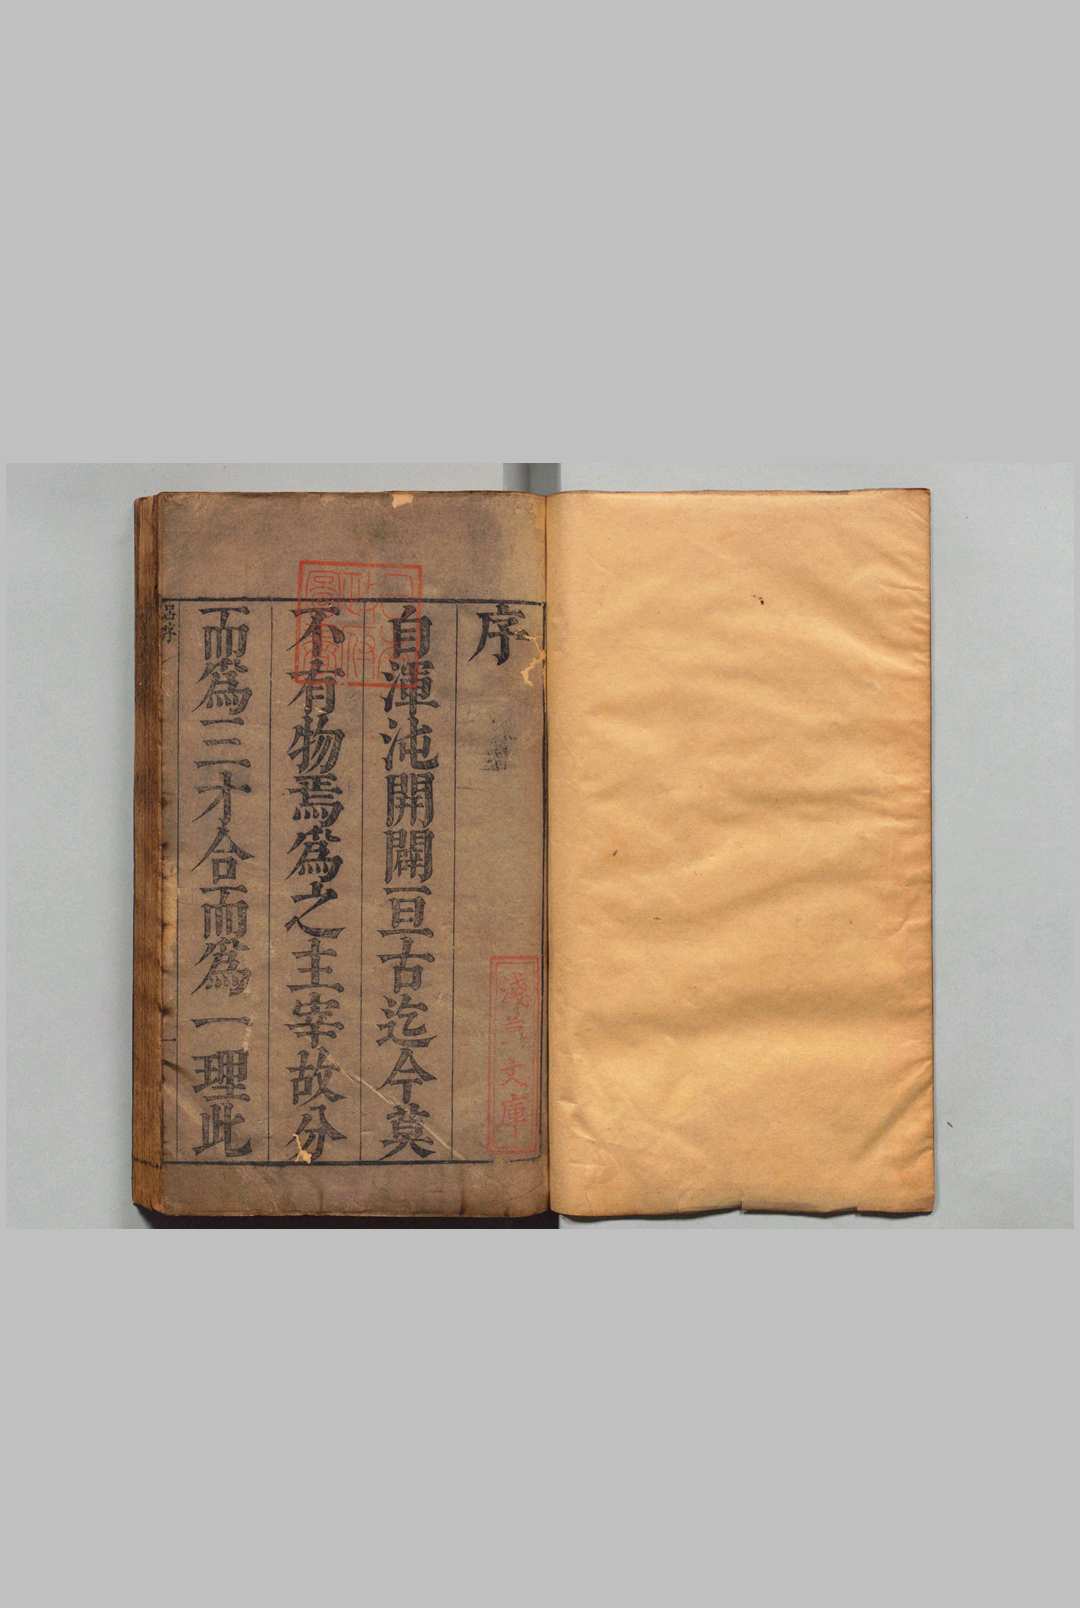 序
自渾沌開闢亘古迄今莫
不有物焉爲之主宰故分
而爲三才合而爲一理此
呂序
淺草文庫